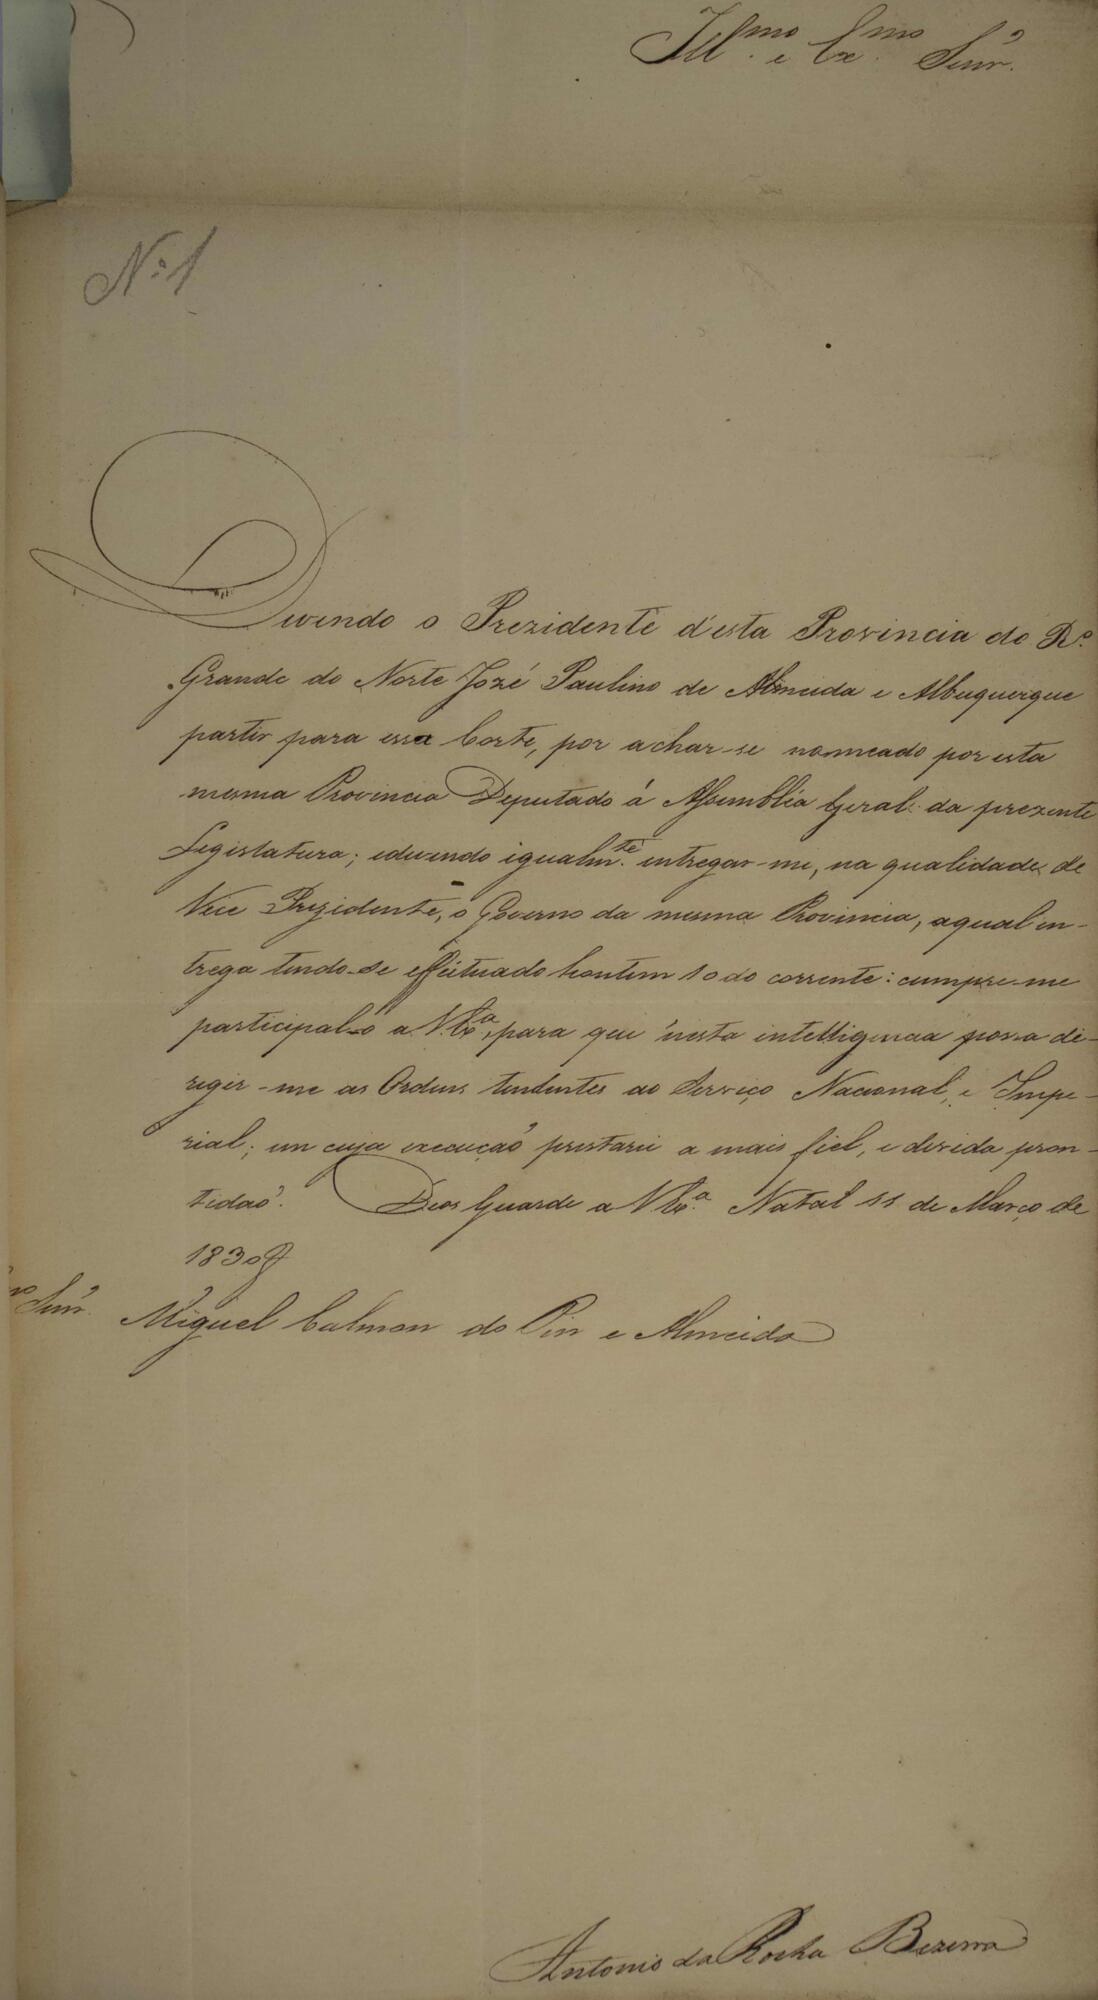 Ill.mo e Ex.mo Senr.
Nº 1
Devendo o Prezidente d'esta Provincia do R.º
Grande do Norte Jozé Paulino de Almeida e Albuquerque
partir para essa Corte, por achar-se nomeado por esta
mesma Provincia Deputado á Assembléa Geral da prezente
Legislatura; edevendo igualm.te entregar-me, na qualidade de
Vice Prezidente, o Governo da mesma Provincia, aqual en-
trega tendo-se effeituado hontem 10 do corrente: cumpre-me
participal-o a V. Ex.a, para que n'esta intelligencia possa di-
rigir-me as Ordens tendentes ao Serviço Nacional, e Impe-
rial; em cuja execução prestarei a mais fiel, e devida pron-
tidaõ. Deos Guarde a V. Ex.a Natal 11 de Março de
1830
mo Senr. Miguel Calmon do Pin e Almeida
Antonio da Rocha Bezerra